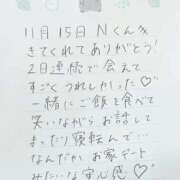 11月15日 Nくん
きてくれてありがとう!
2日連続で会えて
すごくうれしかった♡
一緒にご飯を食べて
笑いながらお話して
まったり寝転んで…
なんだか、お家デート
みたいな安心感♡